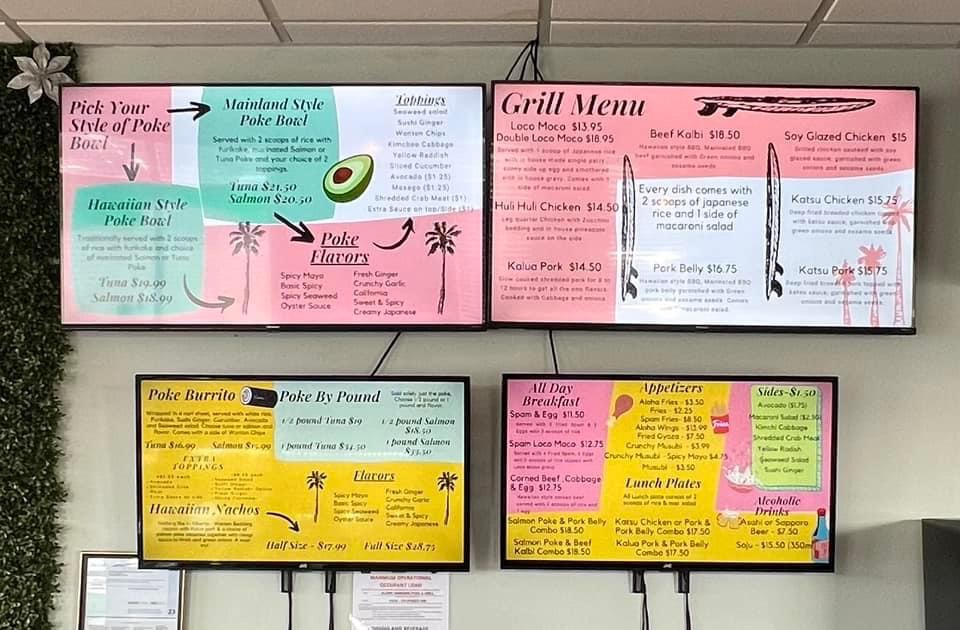 Pick Your
Style of Poke
Bowl
Mainland Style
Poke Bowl
Served with 2 scoops of rice with
furikake, marinated Salmon or
Tuna Poke and your choice of 2
toppings.
Tuna $21.50
Salmon $20.50
Hawaiian Style
Poke Bowl
Traditionally served with 2 scoops
of rice with furikake and choice
of marinated Salmon or Tuna
Poke
Tuna $19.99
Salmon $18.99
Toppings
Seaweed salad
Sushi Ginger
Wonton Chips
Kimchee Cabbage
Yellow Raddish
Sliced Cucumber
Avocado ($1.25)
Masago ($1.25)
Shredded Crab Meat ($1)
Extra Sauce on top/Side ($1)
Poke
Flavors
Spicy Mayo
Basic Spicy
Spicy Seaweed
Oyster Sauce
Fresh Ginger
Crunchy Garlic
California
Sweet & Spicy
Creamy Japanese
Grill Menu
Loco Moco $13.95
Double Loco Moco $18.95
Huli Huli Chicken $14.50
Leg quarter Chicken with Zucchini
sauce on the side
Kalua Pork $14.50
Slow cooked shredded pork for 8 to
12 hours to get all the
Cooked with Cabbage and onions
Beef Kalbi $18.50
Hawaiian style BBQ, Marinated BBQ
beef garnished with Green onions and
sesame seeds
Every dish comes with
2 scoops of japanese
rice and 1 side of
macaroni salad
Pork Belly $16.75
Hawaiian style BBQ, Marinated BBQ
pork belly garnished with Green
onions and sesame seeds. Comes
macaroni salad.
Soy Glazed Chicken $15
Grilled chicken sauteed with soy
glazed sauce, garnished with green
onions and sesame seeds
Katsu Chicken $15.75
Deep fried breaded chicken
with katsu sauce, garnished
green onions and sesame seeds
Katsu Pork $15.75
Deep fried breaded pork topped with
katsu sauce, garnished with green
onions and sesame seeds
Poke Burrito
Wrapped in a nori sheet, served with white rice,
Furikake, Sushi Ginger, Cucumber, Avocado
and Seaweed salad. Choose tuna or salmon and
flavor. Comes with a side of Wonton Chips
Tuna $16.99
Salmon $15.99
EXTRA
TOPPINGS
Hawaiian Nachos
Half Size - $17.99
Full Size $28.75
Poke By Pound
Sold solely just the poke,
Choose 1/2 pound or 1
pound and flavor.
1/2 pound Tuna $19
1/2 pound Salmon
$18.50
1 pound Tuna $34.50
1 pound Salmon
$33.50
Flavors
Spicy Mayo
Basic Spicy
Spicy Seaweed
Oyster Sauce
Fresh Ginger
Crunchy Garlic
California
Sweet & Spicy
Creamy Japanese
All Day
Breakfast
Spam & Egg $11.50
Spam Loco Moco $12.75
Corned Beef ,Cabbage
& Egg $12.75
Appetizers
Aloha Fries - $3.50
Fries - $2.25
Spam Fries - $8.50
Aloha Wings - $13.99
Fried Gyoza - $7.50
Crunchy Musubi - $3.99
Crunchy Musubi - Spicy Mayo $4.75
Musubi - $3.50
Fries
Lunch Plates
All Lunch plate consists of 2
scoops of rice & mac salad
Salmon Poke & Pork Belly
Combo $18.50
Salmon Poke & Beef
Kalbi Combo $18.50
Katsu Chicken or Pork &
Pork Belly Combo $17.50
Kalua Pork & Pork Belly
Combo $17.50
Sides-$1.50
Avocado ($1.75)
Macaroni Salad ($2.50)
Kimchi Cabbage
Shredded Crab Meat
Yellow Radish
Seaweed Salad
Sushi Ginger
Alcoholic
Drinks
Asahi or Sapporo
Beer - $7.50
Soju - $15.50 (350ml)
JVC
JVC
MAXIMUM OPERATIONAL
OCCUPANT LOAD
23
FOOD AND BEVERAGE